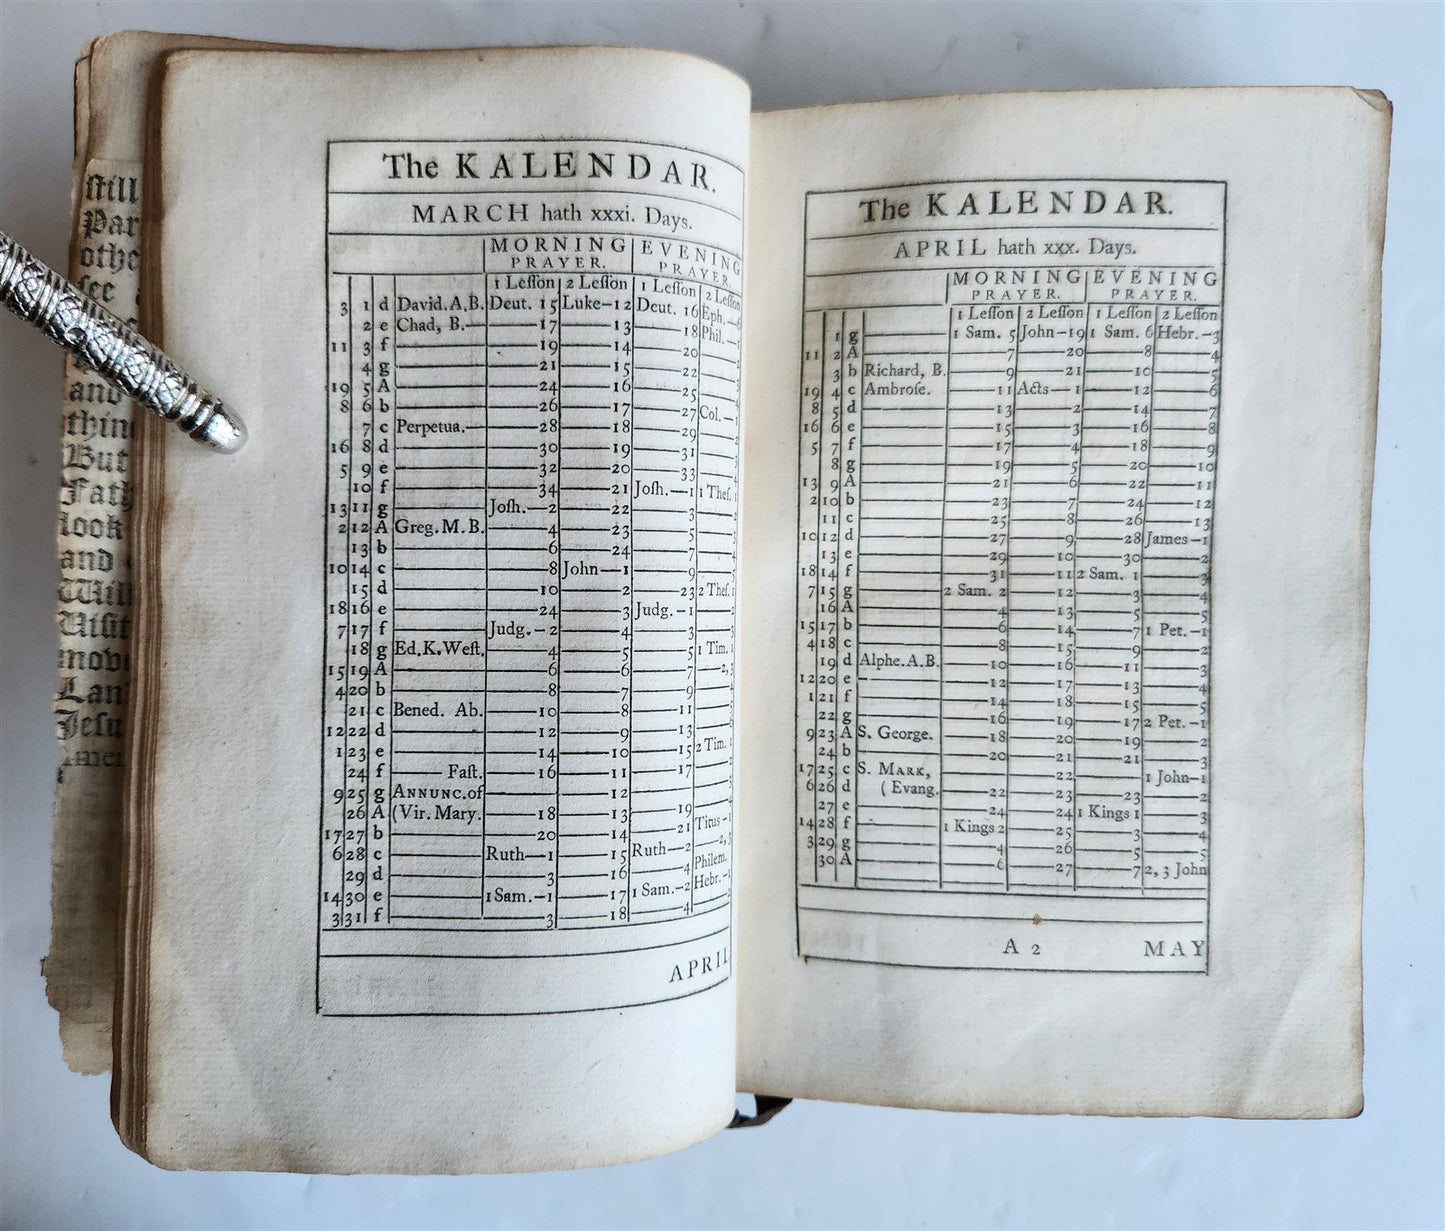 still
Par
othe
see
and
thin
But
Fath
look
and
Will
Visit
move
Lan
Jesu
The KALENDAR.
MARCH hath xxxi. Days.
MORNING PRAYER. EVENING PRAYER.
1 Leſſon 2 Leſſon 1 Leſſon 2 Leſſon
3 1 d David.A.B. Deut. 15 Luke—12 Deut. 16 Eph.—6
2 e Chad, B.— 17 13 18 Phil.—1
11 3 f 19 14 20 2
4 g 21 15 22 3
19 5 A 24 16 25 4
8 6 b 26 17 27 Col.—1
7 c Perpetua.— 28 18 29 2
16 8 d 30 19 31 3
5 9 e 32 20 33 4
10 f 34 21 Joſh.—1 1 Theſ. 1
13 11 g Joſh.—2 22 3 2
2 12 A Greg.M.B. 4 23 5 3
13 b 6 24 7 4
10 14 c 8 John—1 9 5
15 d 10 2 23 2 Theſ. 1
18 16 e 24 3 Judg.—1 2
7 17 f Judg.—2 4 3 3
18 g Ed.K.Weſt. 4 5 5 1 Tim. 1
15 19 A 6 6 7 2, 3
4 20 b 8 7 9 4
21 c Bened. Ab. 10 8 11 5
12 22 d 12 9 13 6
1 23 e 14 10 15 2 Tim. 1
24 f Faſt. 16 11 17 2
9 25 g ANNUNC.of 12 3
26 A (Vir. Mary. 18 13 19 4
17 27 b 20 14 21 Titus—1
6 28 c Ruth—1 15 Ruth—2 2, 3
29 d 3 16 4 Philem.
14 30 e 1 Sam.—1 17 1 Sam.—2 Hebr.—1
3 31 f 3 18 4 2
APRIL
The KALENDAR.
APRIL hath xxx. Days.
MORNING PRAYER. EVENING PRAYER.
1 Leſſon 2 Leſſon 1 Leſſon 2 Leſſon
1 g 1 Sam. 5 John—19 1 Sam. 6 Hebr.—3
11 2 A 7 20 8 4
3 b Richard, B. 9 21 10 5
19 4 c Ambroſe. 11 Acts—1 12 6
8 5 d 13 2 14 7
16 6 e 15 3 16 8
5 7 f 17 4 18 9
8 g 19 5 20 10
13 9 A 21 6 22 11
2 10 b 23 7 24 12
11 c 25 8 26 13
10 12 d 27 9 28 James—1
13 e 29 10 30 2
18 14 f 31 11 2 Sam. 1 3
7 15 g 2 Sam. 2 12 3 4
16 A 4 13 5 5
15 17 b 6 14 7 1 Pet.—1
4 18 c 8 15 9 2
19 d Alphe.A.B. 10 16 11 3
12 20 e 12 17 13 4
1 21 f 14 18 15 5
22 g 16 19 17 2 Pet.—1
9 23 A S. George. 18 20 19 2
24 b 20 21 21 3
17 25 c S. MARK, 22 1 John—1
6 26 d (Evang. 22 23 23 2
27 e 24 24 1 Kings 1 3
14 28 f 1 Kings 2 25 3 4
3 29 g 4 26 5 5
30 A 6 27 7 2, 3 John
A 2 MAY